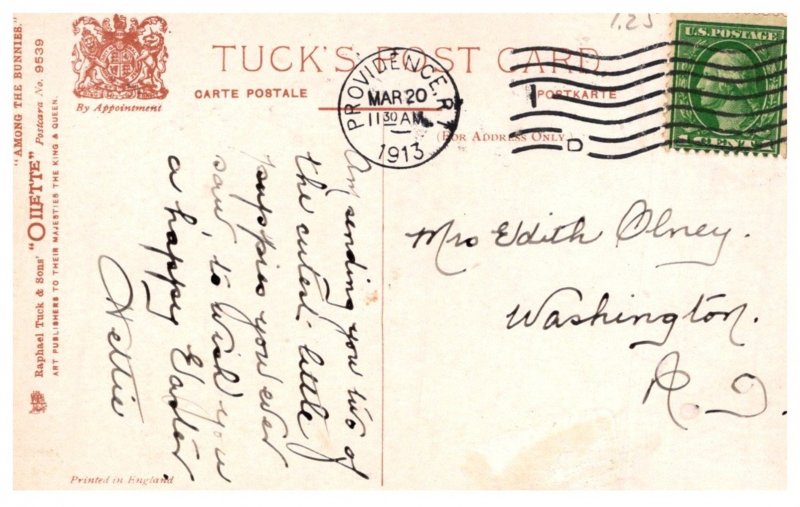 "AMONG THE BUNNIES."
Raphael Tuck & Sons' "OILETTE" Postcard No. 9539
ART PUBLISHERS TO THEIR MAJESTIES THE KING & QUEEN.
By Appointment
TUCK'S POST CARD
CARTE POSTALE
POSTKARTE
(FOR ADDRESS ONLY)
1.25
PROVIDENCE, R.I.
MAR 20
11 30 AM
1913
D
U.S. POSTAGE
1 CENT 1
Am sending you two of
the cutest little
puppies you ever
saw to wish you
a happy Easter
Hettie
Mrs Edith Olney.
Washington.
R. I.
Printed in England